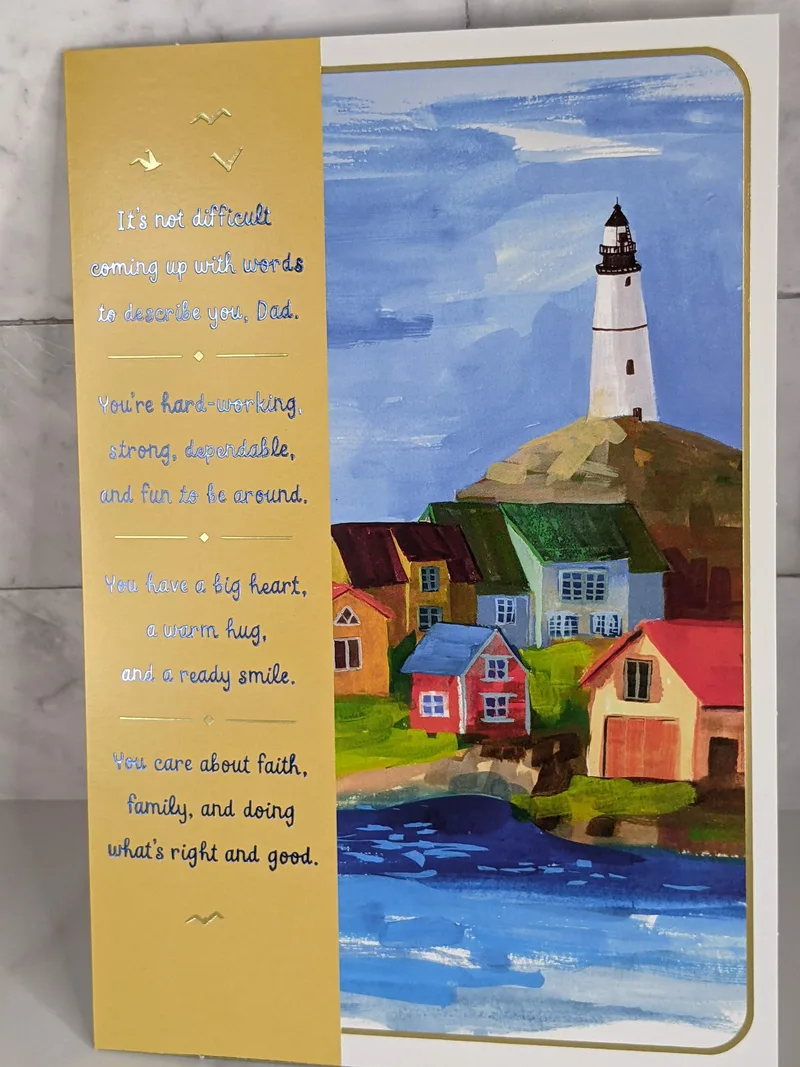 It's not difficult
coming up with words
to describe you, Dad.
You're hard-working,
strong, dependable,
and fun to be around.
You have a big heart,
a warm hug,
and a ready smile.
You care about faith,
family, and doing
what's right and good.